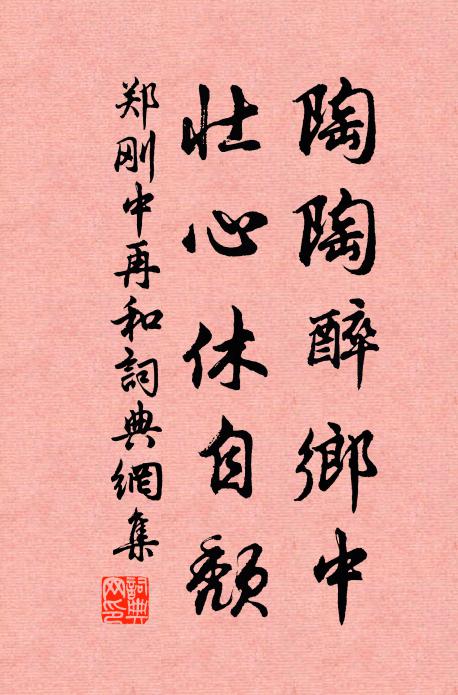 陶陶醉鄉中
壮心休自颓
郑刚中再和詞典網集
詞典网印